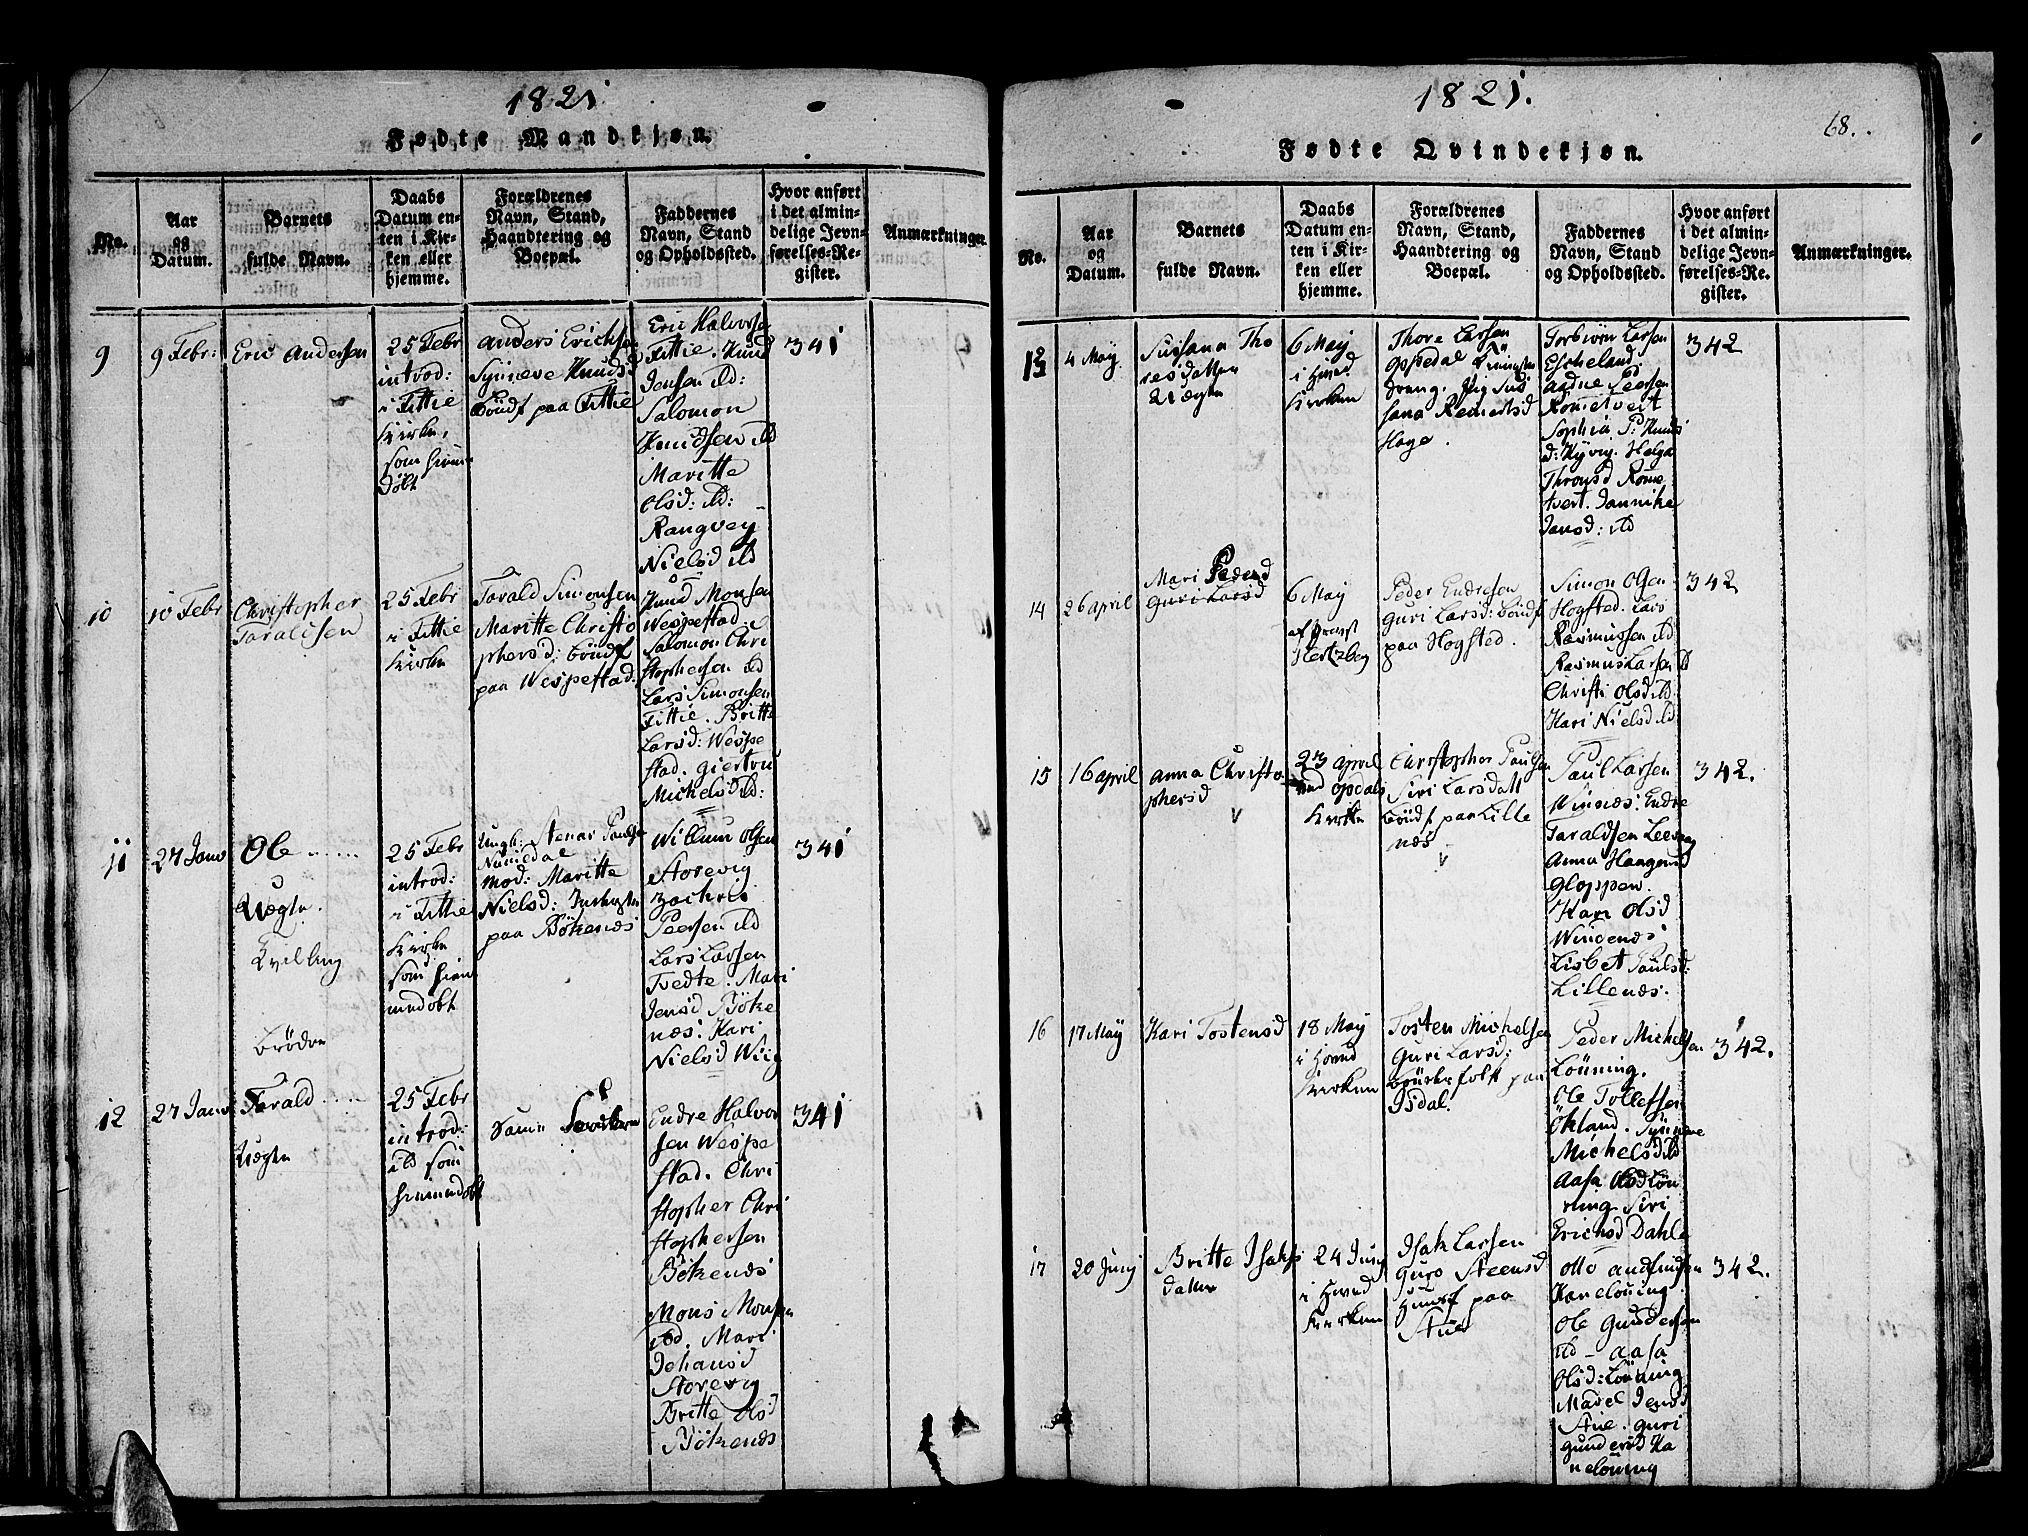 1821
Fødte Mandkjøn.
No.
Aar
og
Datum.
Barnets
fulde Navn.
Daabs
Datum en-
ten i Kir-
ken eller
hjemme.
Forældrenes
Navn, Stand,
Haandtering og
Boepæl.
Faddernes
Navn, Stand
og Opholdssted.
Hvor anført
i det almin-
delige Jevn-
førelses-Re-
gister.
Anmærkninger.
9
9 Febr:
Eric Andersen
25 Febr
introd:
i Fittie
Kirke,
som hiem
døbt
Anders Erichsen
Synneve Knudsd
Bøndf paa Fittie
Eric Halvorsen
Fittie. Knud
Jensen ibd:
Salomon
Knudsen ibd
Maritte
Olsd: ibd:
Rangvey
Nielsd ibd
341
10
10 Febr
Christopher
Taraldsen
25 Febr
i Fittie
Kirke
Tarald Simonsen
Maritte Christo
phersd: Bøndf
paa Wespestad.
Knud Monsen
Wespestad.
Salomon Chri
stophersen ibd
Lars Simonsen
Fittie. Britte
Larsd: Wespe
stad. Giertrud
Michelsd ibd:
11
27 Janv
Ole
Uægte.
Tvilling
25 Febr
introd:
i Fittie
Kirke
som hiem
medøbt
Ungk: Stenar Paulsen
Nummedal
Mod: Maritte
Nielsd:
paa Bökenæs
Willum Olsen
Storevig
Zachris
Peersen ibd
Lars Larsen
Tvedte. Mari
Jensd Böke
næs. Kari
Nielsd Wiig
341
Brödre
12
27 Janv
Tarald
Uægte
25 Febr
introd:
ibd som
hiemmedøbt
Samme Forældre
Endre Halvor
sen Wespe
stad. Chri
stopher Chri
stophersen
Bökenæs
Mons Monsen
ibd. Mari
Johansd
Storevig
Britte Olsd
Bökenæs
341
1821.
68.
Fødte Qvindekjøn.
No.
Aar
og
Datum.
Barnets
fulde Navn.
Daabs
Datum en-
ten i Kir-
ken eller
hjemme.
Forældrenes
Navn, Stand,
Haandtering og
Boepæl.
Faddernes
Navn, Stand
og Opholdssted.
Hvor anført
i det almin-
delige Jevn-
førelses-Re-
gister.
Anmærkninger.
13
4 May
Susana Tho
resdatter
Uægte
6 May
i Hoved
Kirken
Thore Larsen
Opsedal
dreng. Pig Sus
sana Reinertsd
Hage.
Torbiörn Larsen
Escheland.
Aadne Peersen
Rometvert
Sophia P: Knuds
d: Kyvig. Helga
Thronsd Rome
tvert. Jannike
Jansd: ibd
342
14
26 april
Mari Pedersd
Guri Larsd
6 May
af Provst
Hertzberg
Peder Endresen
Guri Larsd: Bøndf
paa Hogsted.
Simon Olsen
Hogsted. Lars
Rasmussen ibd
Rasmus Larsen ibd
Christi Olsd ibd
Kari Nielsd ibd
342
15
16 april
Anna Christo
phersd
23 April
ved Opdals
Kirke
Christopher Paulsen
Siri Larsdatt
Bøndf paa Lille
næs
Paul Larsen
Winnæs. Endre
Taraldsen Leevaag
Anna Haagensd
Gloppen.
Kari Olsd
Wingenæs
Lisbet Paulsd:
Lillenæs.
342.
16
17 May
Kari Tostensd
18 May
i Hoved
Kirken
Tosten Michelsen
Guri Larsd:
Brugerfolk paa
Isdal.
Peder Michelsen
Lönning.
Ole Tollefsen
Ökland. Synneve
Michelsd ibd
Aasa Olsd Lön
ning. Siri
Erichsd Dahle
342.
17
20 Juny
Britte Isachs
datter
24 Juny
i Hoved
Kirken
Isak Larsen
Guro Steensd
Huusf paa
Stue
Otto Andfindsen
Kanelönning.
Ole Gundersen
ibd - Aasa
Olsd: Lönning
Madel Jensd
Stue. Guri
Gundersd Ka
nelönning
342.